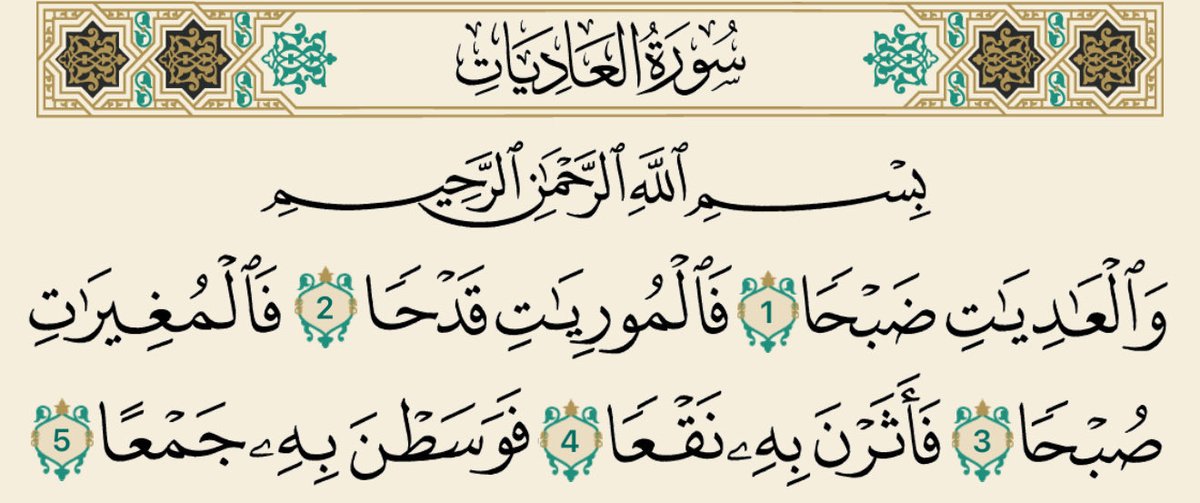 سُورَةُ العَادِيَاتِ
بِسْمِ ٱللَّهِ ٱلرَّحْمَٰنِ ٱلرَّحِيمِ
وَٱلْعَٰدِيَٰتِ ضَبْحًا 1 فَٱلْمُورِيَٰتِ قَدْحًا 2 فَٱلْمُغِيرَٰتِ
صُبْحًا 3 فَأَثَرْنَ بِهِۦ نَقْعًا 4 فَوَسَطْنَ بِهِۦ جَمْعًا 5